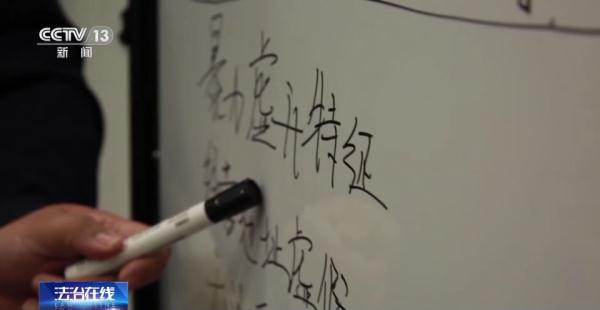 CCTV 13
新闻
暴力虚开特征
地址虚假
法治在线